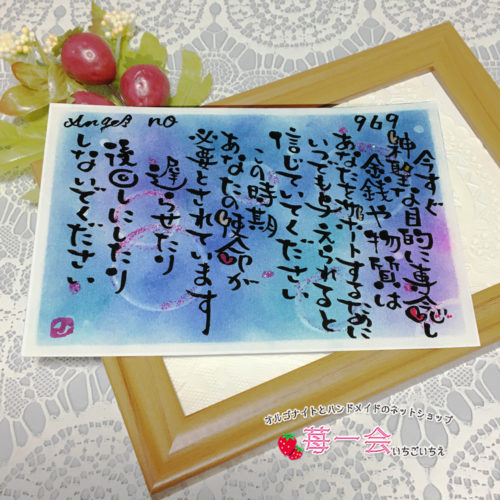 Angel no 969
今すぐ
神聖な目的に専念し
金銭や物質は
あなたをサポートするために
いつでも与えられると
信じていてください
この時期
あなたの使命が
必要とされています
遅らせたり
後回しにしたり
しないでください
オルゴナイトとハンドメイドのネットショップ
苺一会 いちごいちえ